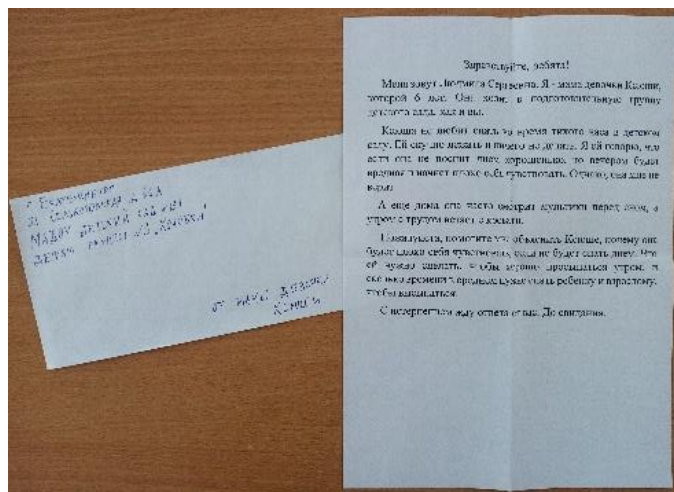 г. Екатеринбург
МАДОУ ДЕТСКИЙ САД
ДЕТЯМ
ОТ МАМЫ ДЕВОЧКИ
КСЮШИ
Здравствуйте, ребята!
Меня зовут Людмила Сергеевна. Я - мама девочки Ксюши,
которой 6 лет. Она ходит в подготовительную группу
детского сада, как и вы.
Ксюша не любит спать во время тихого часа в детском
саду. Ей скучно лежать и ничего не делать. Я ей говорю, что
если она не поспит днем хорошенько, то вечером будет
вредной и начнет плохо себя чувствовать. Однако, она мне не
верит.
А еще дома она часто смотрит мультики перед сном, а
утром с трудом встает с кровати.
Пожалуйста, помогите мне объяснить Ксюше, почему она
будет плохо себя чувствовать, если не будет спать днем. Что
ей нужно сделать, чтобы хорошо просыпаться утром, и
сколько времени в среднем нужно спать ребенку и взрослому,
чтобы высыпаться.
С нетерпением жду ответа от вас. До свидания.